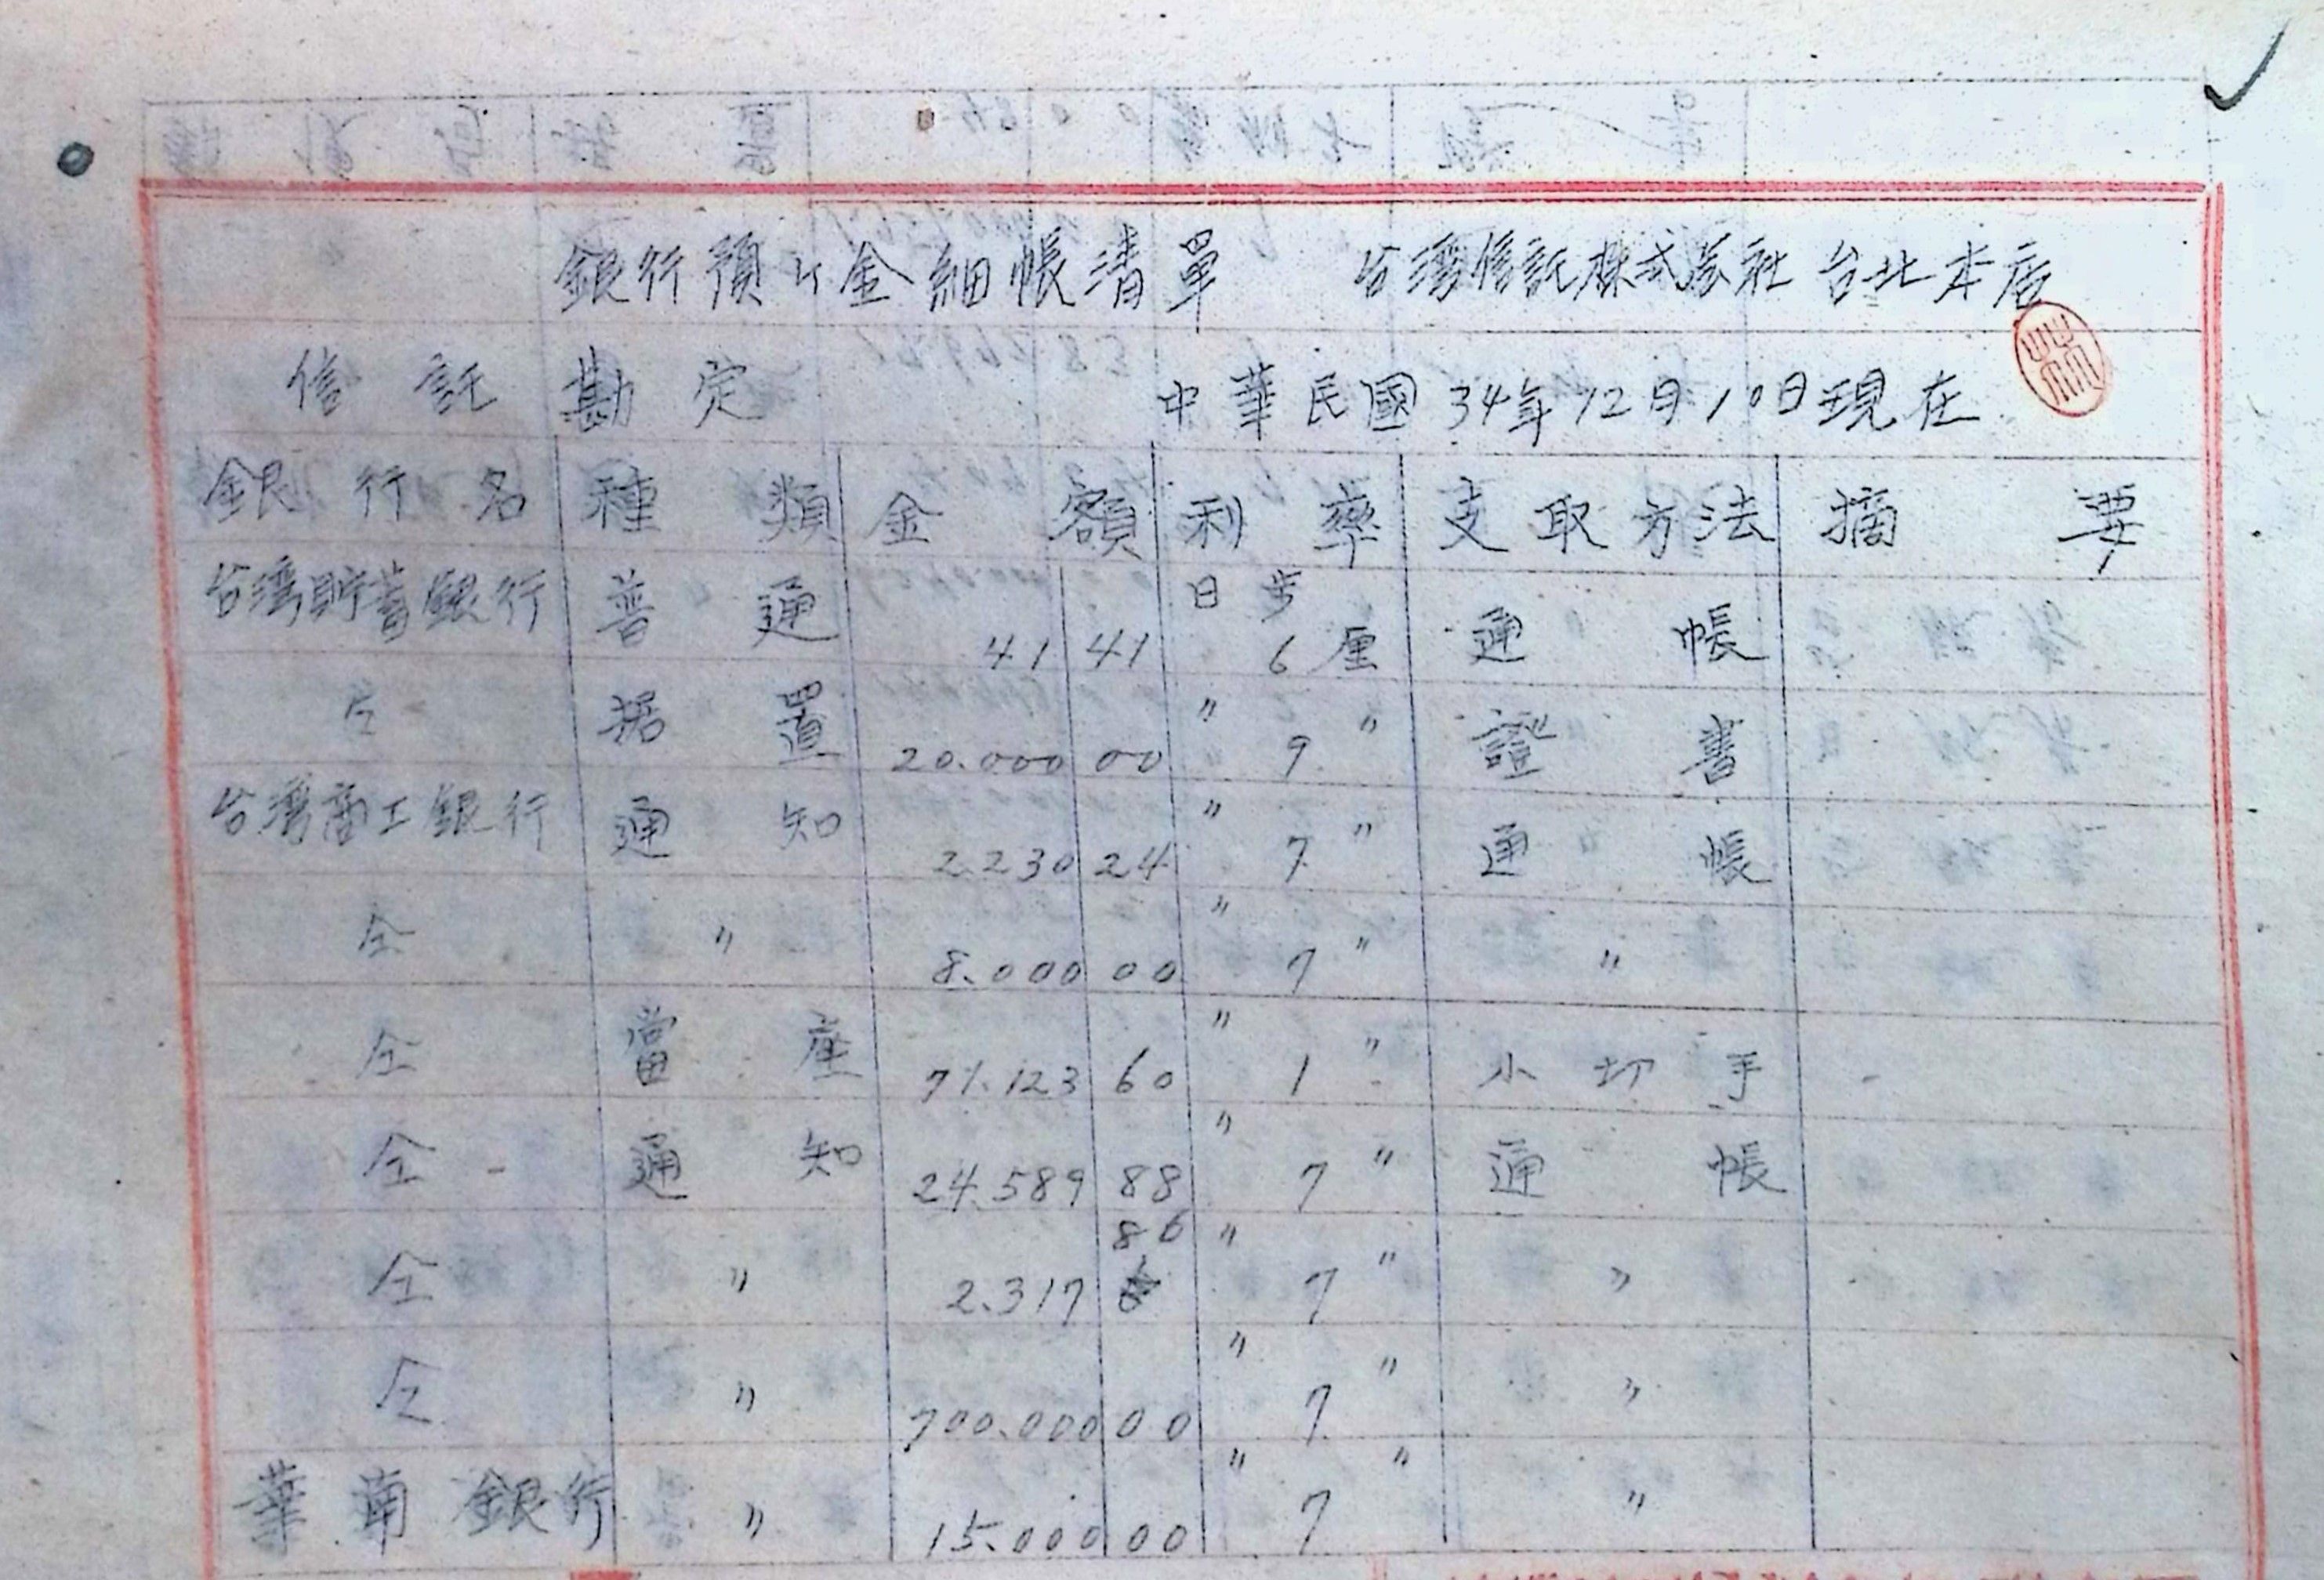 銀行預ケ金細帳清單 台湾信託株式会社 台北本店
信託勘定 中華民國34年12月10日現在
銀行名 種類 金額 利率 支取方法 摘要
台湾貯蓄銀行 普通 41 41 日步 6厘 通帳
仝 据置 20.000 00 〃 9〃 證書
台湾商工銀行 通知 2.230 24 〃 7〃 通帳
仝 〃 8.000 00 〃 7〃 〃
仝 當座 71.123 60 〃 1〃 小切手
仝 通知 24.589 88 〃 7〃 通帳
仝 〃 2.317 86 〃 7〃 〃
仝 〃 700.000 00 〃 7〃 〃
華南銀行 〃 15.000 00 〃 7〃 〃